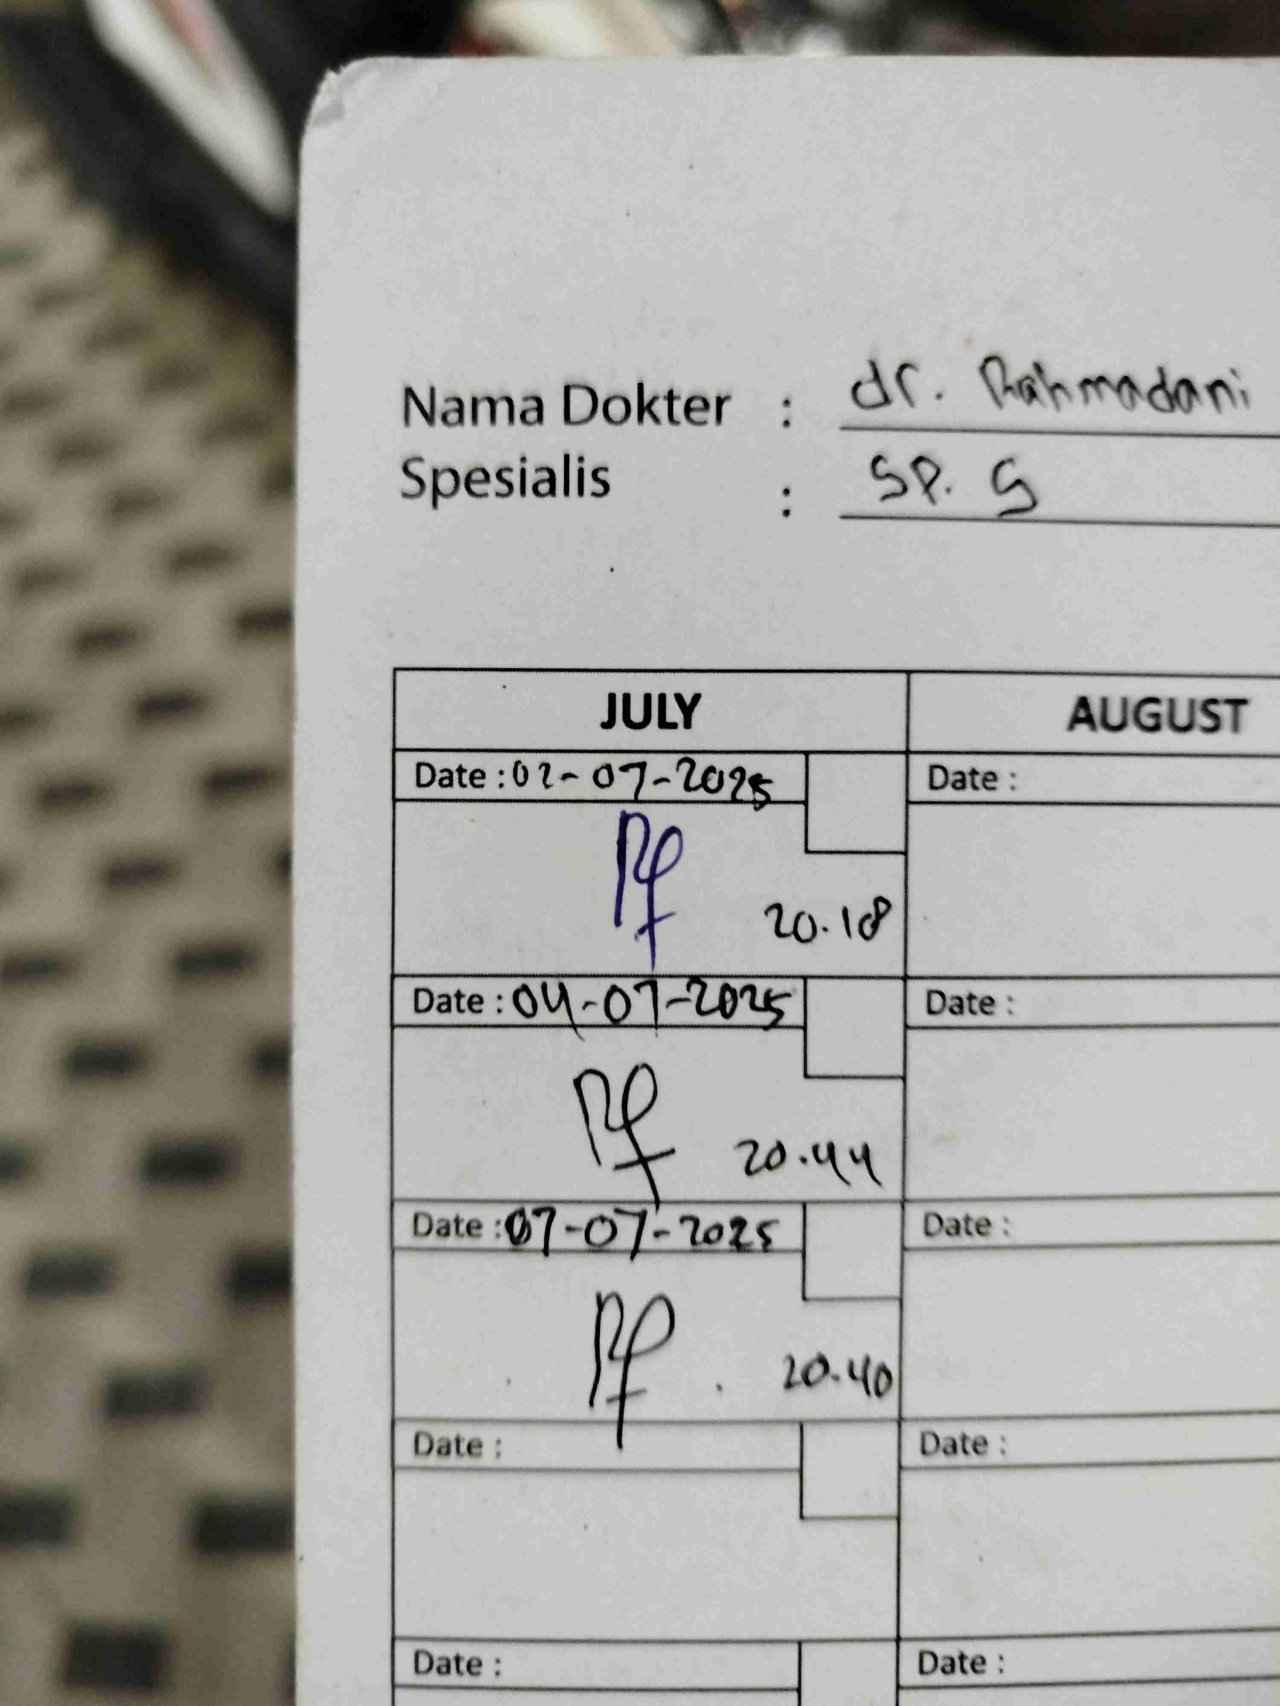 Nama Dokter : dr. Rahmadani
Spesialis : SP. S
JULY AUGUST
Date : 02-07-2025 Date :
20.18
Date : 04-07-2025 Date :
20.44
Date : 07-07-2025 Date :
20.40
Date : Date :
Date : Date :